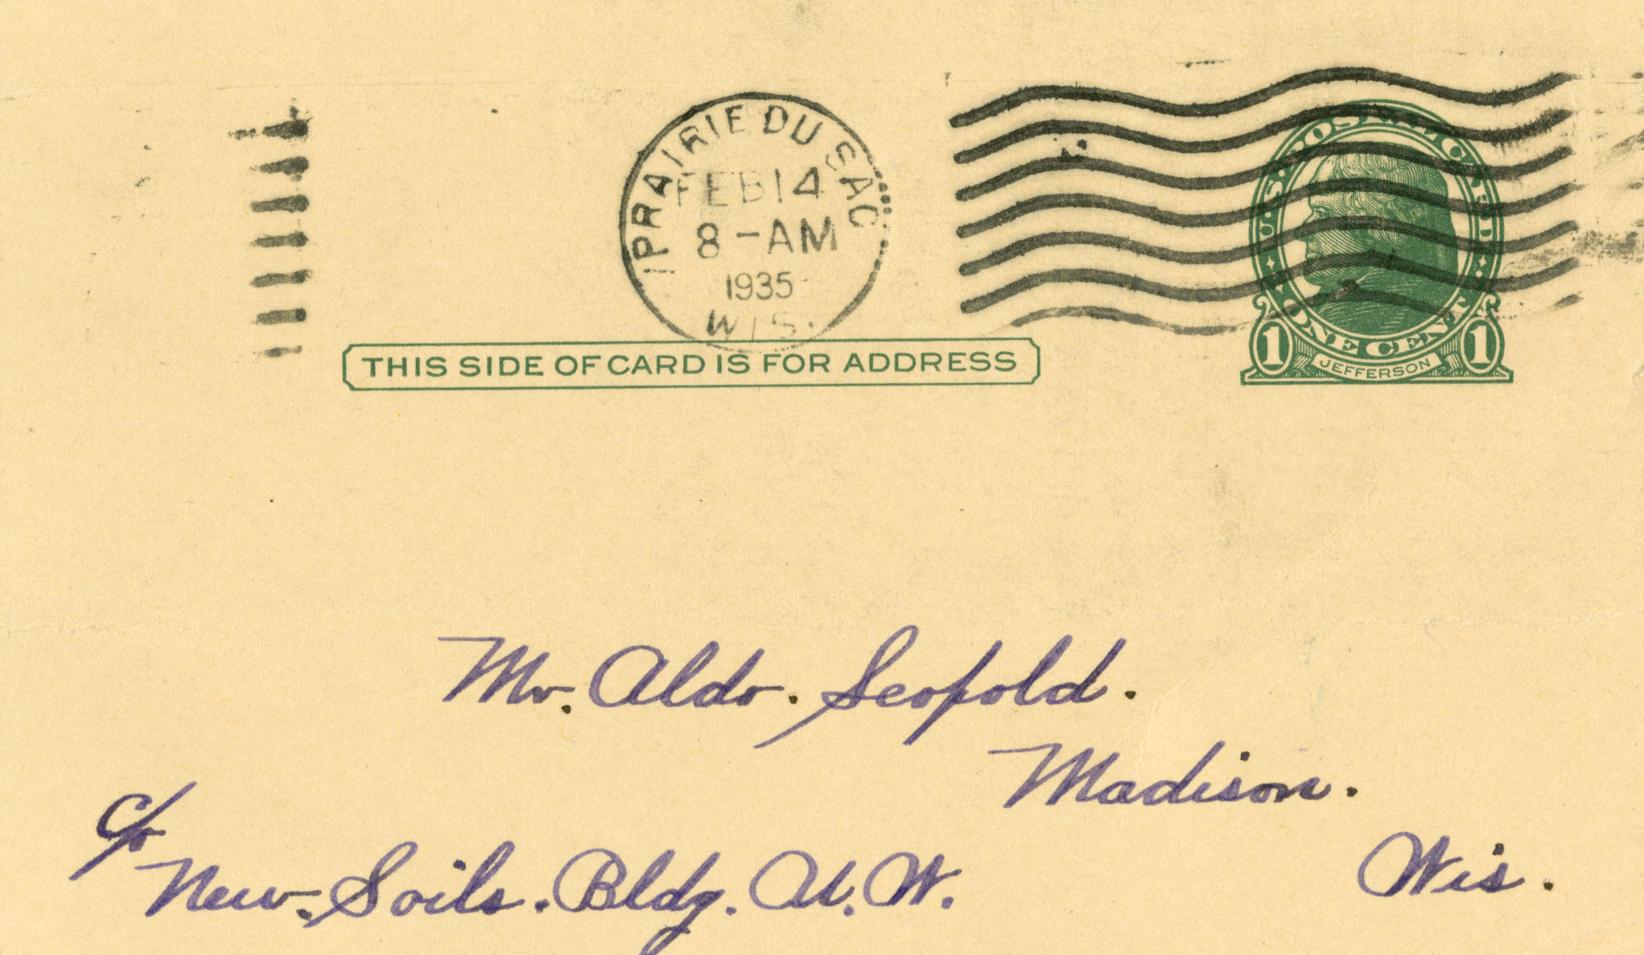 PRAIRIE DU SAC
FEB 14
8-AM
1935
WIS.
U.S. POSTAL CARD
ONE CENT
1 JEFFERSON 1
THIS SIDE OF CARD IS FOR ADDRESS
Mr. Aldo. Leopold.
Madison.
Wis.
c/o
New. Soils. Bldg. U. W.